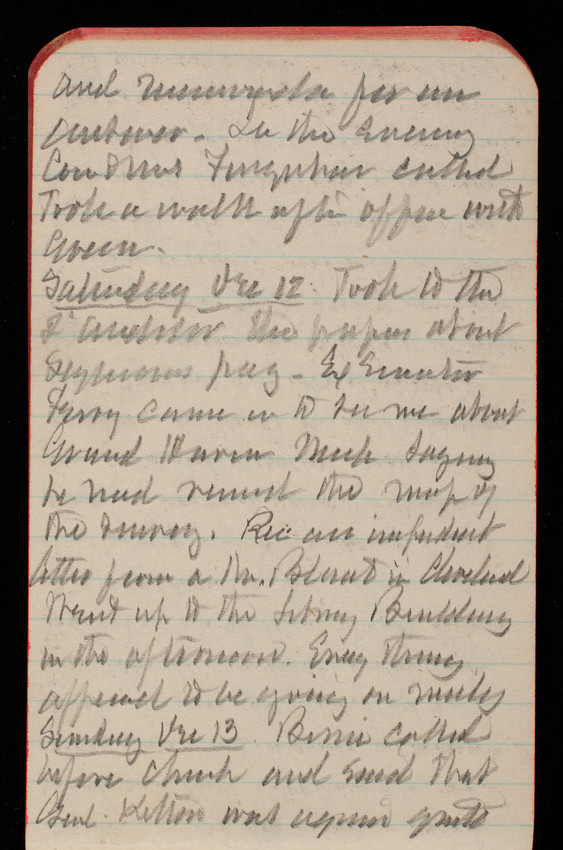 and
answer. In the evening
Col and Mrs Farquhar called
Took a walk after office with
Green.
Saturday Dec 12. Took to the
2d Auditor the papers about
pay - Ex Senator
Ferry came in to see me about
Grand Haven Mich. Saying
he had the map of
the survey. Rec an impudent
letter from a Mr. in Cleveland
Went up to the Library Building
in the afternoon. Every thing
appeared to be going on nicely
Sunday Dec 13 Bessie called
before church and said that
Genl. Kelton was again quite